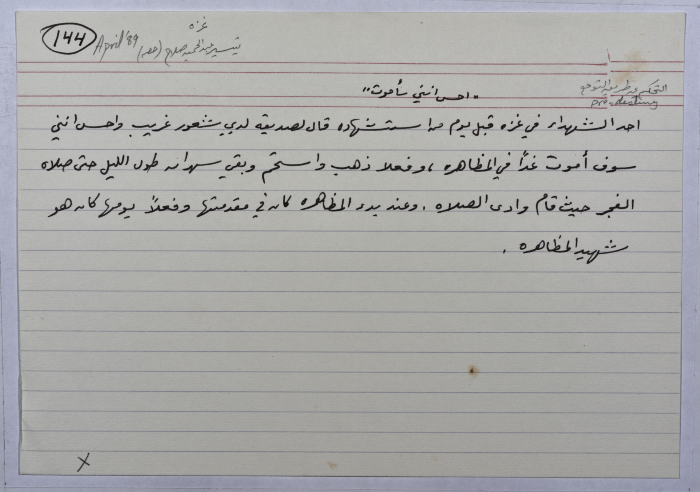 144
April '89
غزه
تيسير عبد الحميد صلاح (حصه)
التحكم عن طريق التوقع
predicting
"احس انني سأموت"
احد الشهداء في غزه قبل يوم من استشهاده قال لصديقه لدي شعور غريب واحس انني
سوف أموت غداً في المظاهره ، وفعلا ذهب واستحم وبقي سهران طول الليل حتى صلاة
الفجر حيث قام وادى الصلاه . وعند بدء المظاهره كان في مقدمتها وفعلاً يومها كان هو
شهيد المظاهره .
X